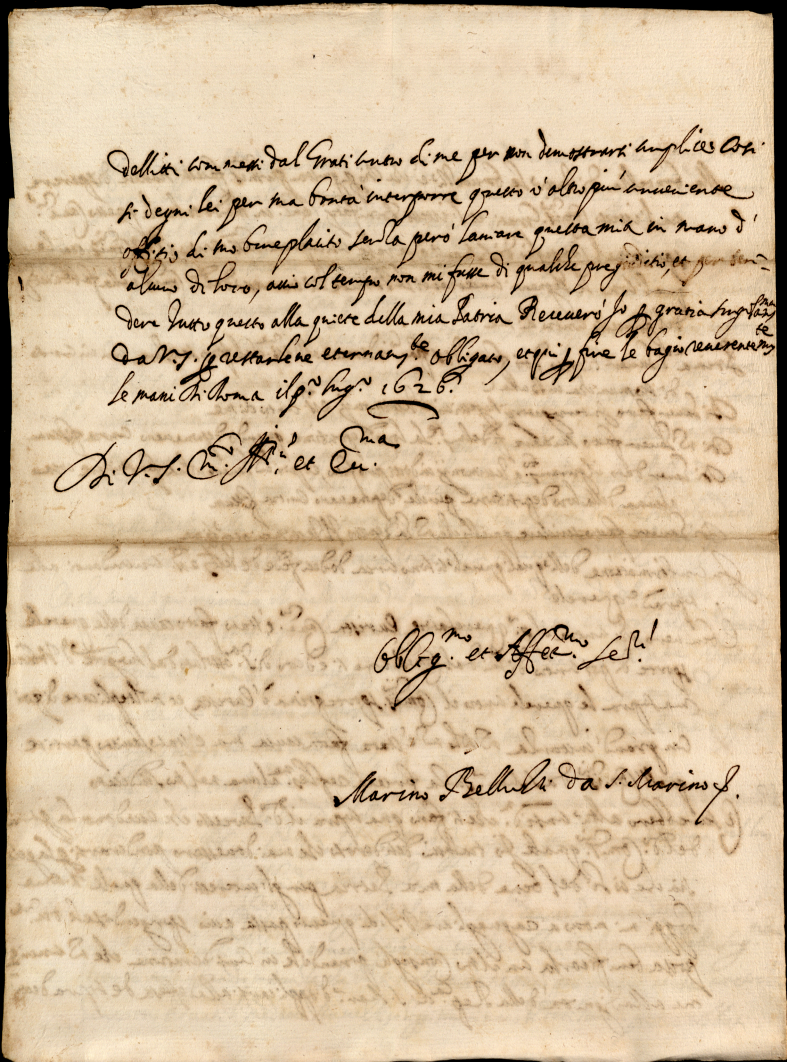 dellitti commessi dal Grati contro di me per non dimostrarsi complice. Cosi
si degni lei per sua bontà interporre questo ò altro più conveniente
offitio di suo beneplacito senza però lasciare questa mia in mano d'
alcuno di loro, acciò col tempo non mi fusse di qualche pregiuditio, et per
dere tutto questo alla quiete della mia Patria Riceverò Io p gratia
da V.S. p restarlene eternam.te obligato, et qui p fine le bagio reverentem.te
le mani di Roma il p.º lug.º 1626.
Di V.S. et
Oblig.mo et Affet.mo Ser.
Marino Bellutti da S. Marino